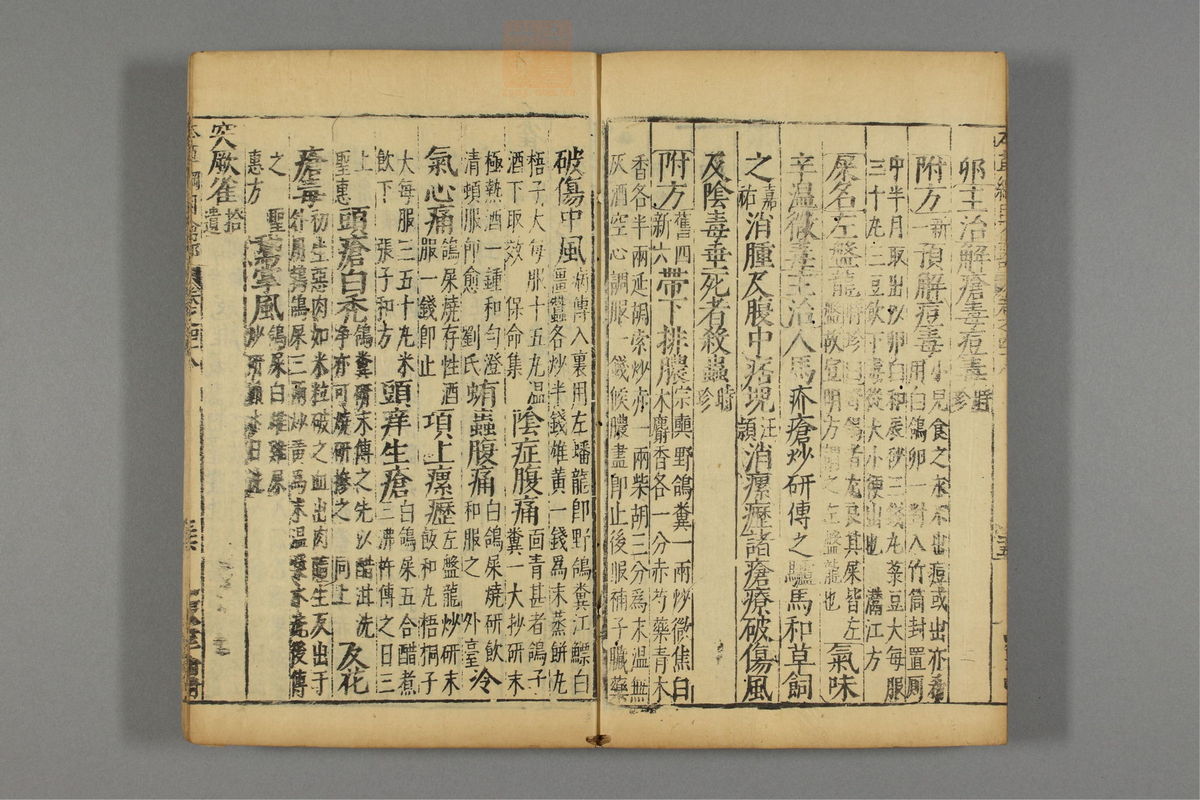 卵主治解瘡毒痘毒時珍
附方新一預解痘毒小兒食之永不出痘或出亦稀
用白鴿卵一對入竹筒封置厠
中半月取出以卵白和辰砂三錢丸菉豆大每服
三十丸三豆飲下毒從大小便出也 潛江方
屎名左盤龍時珍曰野鴿者尤良其屎皆左
盤故宣明方謂之左盤龍也氣味
辛溫微毒主治人馬疥瘡炒研傅之驢馬和草飼
之嘉祐消腫及腹中痞塊汪頴消瘰癧諸瘡療破傷風
及陰毒垂死者殺蟲時珍
附方舊四新六帶下排膿宗奭野鴿糞一兩炒微焦白
木麝香各一分赤芍藥青木
香各半兩延胡索炒赤一兩柴胡三分爲末溫無
灰酒空心調服一錢候膿盡卽止後服補子臟藥
破傷中風病傳入裏用左蟠龍卽野鴿糞江鰾白
殭蠶各炒半錢雄黃一錢爲末蒸餅丸
梧子大每服十五丸溫
酒下取效 保命集陰症腹痛面青甚者鴿子
糞一大抄研末
極熱酒一鍾和勻澄
清頓服卽愈 劉氏蛕蟲腹痛白鴿屎燒研飲
和服之 外臺冷
氣心痛鴿屎燒存性酒
服一錢卽止項上瘰癧左盤龍炒研末
飯和丸梧桐子
大每服三五十丸米
飲下 張子和方頭痒生瘡白鴿屎五合醋煮
三沸杵傅之日三
上 聖惠頭瘡白禿鴿糞研末傅之先以醋泔洗
淨亦可燒研摻之 同上反花
瘡毒初生惡肉如米粒破之血出肉隨生反出于
外用鵓鴿屎三兩炒黃爲末溫漿水洗後傅
之 聖
惠方鵞掌風鴿屎白雄雞屎
炒研
突厥雀拾遺